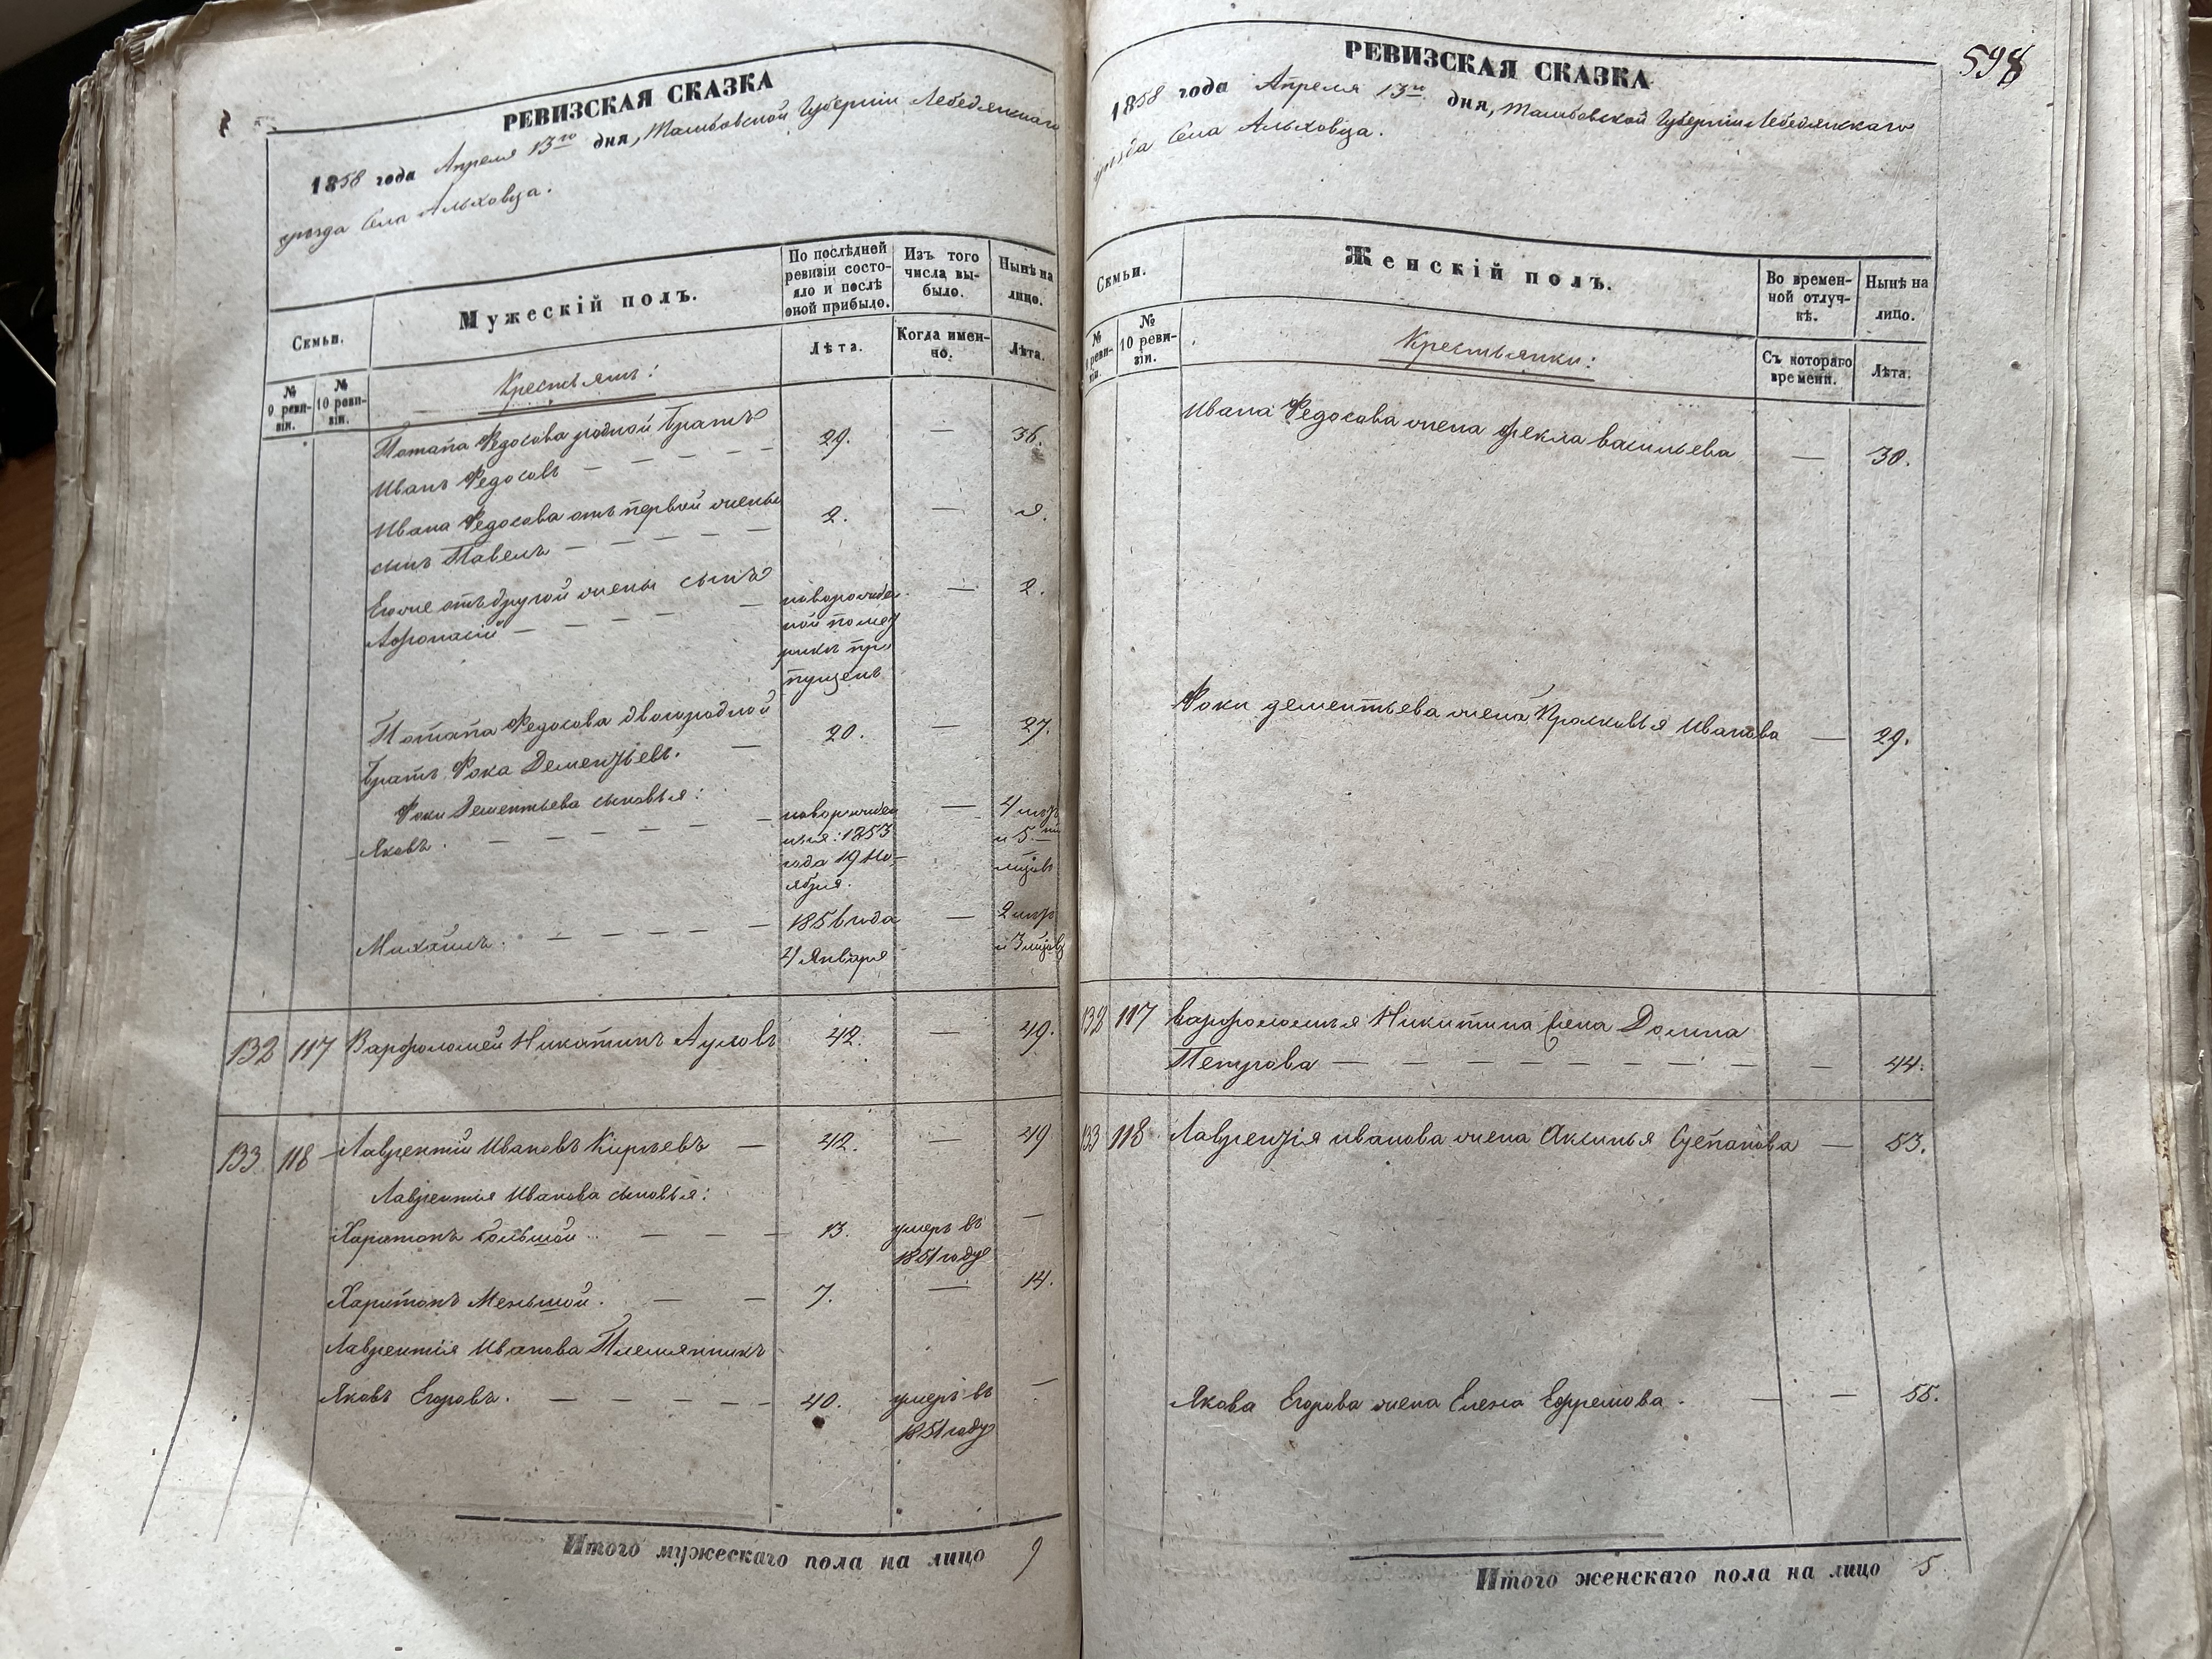 РЕВИЗСКАЯ СКАЗКА
1858 года Апреля 13го дня, Тамбовской Губернии Лебедянскаго
уѣзда Села Альховца.
Семьи.
№ 9 реви-зіи.
№ 10 реви-зіи.
Мужескій полъ.
По послѣдней ревизіи состо-яло и послѣ оной прибыло.
Лѣта.
Изъ того числа вы-было.
Когда имен-но.
Нынѣ на лицо.
Лѣта.
Крестьянѣ:
Потапа Федосова родной братъ
Иванъ Федосовъ — — — — — 29. — 36.
Ивана Федосова отъ первой жены
сынъ Павелъ — — — — — 2. — 9.
Егоже отъ другой жены сынъ
Афонасій — — — — — 2.
новорожден
ной по
пущенъ
Потапа Федосова двоюродной
братъ Фока Дементьевъ. — 20. — 27.
Фоки Дементьева сыновья:
Яковъ. — — — — —
новорожден
1853
года 19 Но-
ября.
— 4
и 5
Михайлъ. — — — — — 1856 года
4 Января
— 2
и 3
132 117 Варфоломей Никитинъ Ауловъ 42. — 49.
133 118 Лаврентій Ивановъ Кирѣевъ — 42. — 49
Лаврентія Иванова сыновья:
Харитонъ большой — — — 13. умеръ въ —
1851 году
Харитонъ Меньшой. — — 7. — 14.
Лаврентія Иванова Племянникъ
Яковъ Егоровъ. — — — — — 40. умеръ въ —
1851 году
Итого мужескаго пола на лицо 9
598
РЕВИЗСКАЯ СКАЗКА
1858 года Апреля 13го дня, Тамбовской Губернии Лебедянскаго
уѣзда Села Альховца.
Семьи.
№ 9 реви-зіи.
№ 10 реви-зіи.
Женскій полъ.
Во времен-ной отлуч-кѣ.
Съ котораго времени.
Нынѣ на лицо.
Лѣта.
Крестьянки:
Ивана Федосова жена Фекла Васильева — 30.
Фоки Дементьева жена Прасковья Иванова — 29.
132 117 Варфоломея Никитина жена Домна
Петрова — — — — — — — — 44.
133 118 Лаврентія Иванова жена Аксинья Степанова — 53.
Якова Егорова жена Елена Ефремова. — — 55.
Итого женскаго пола на лицо 5